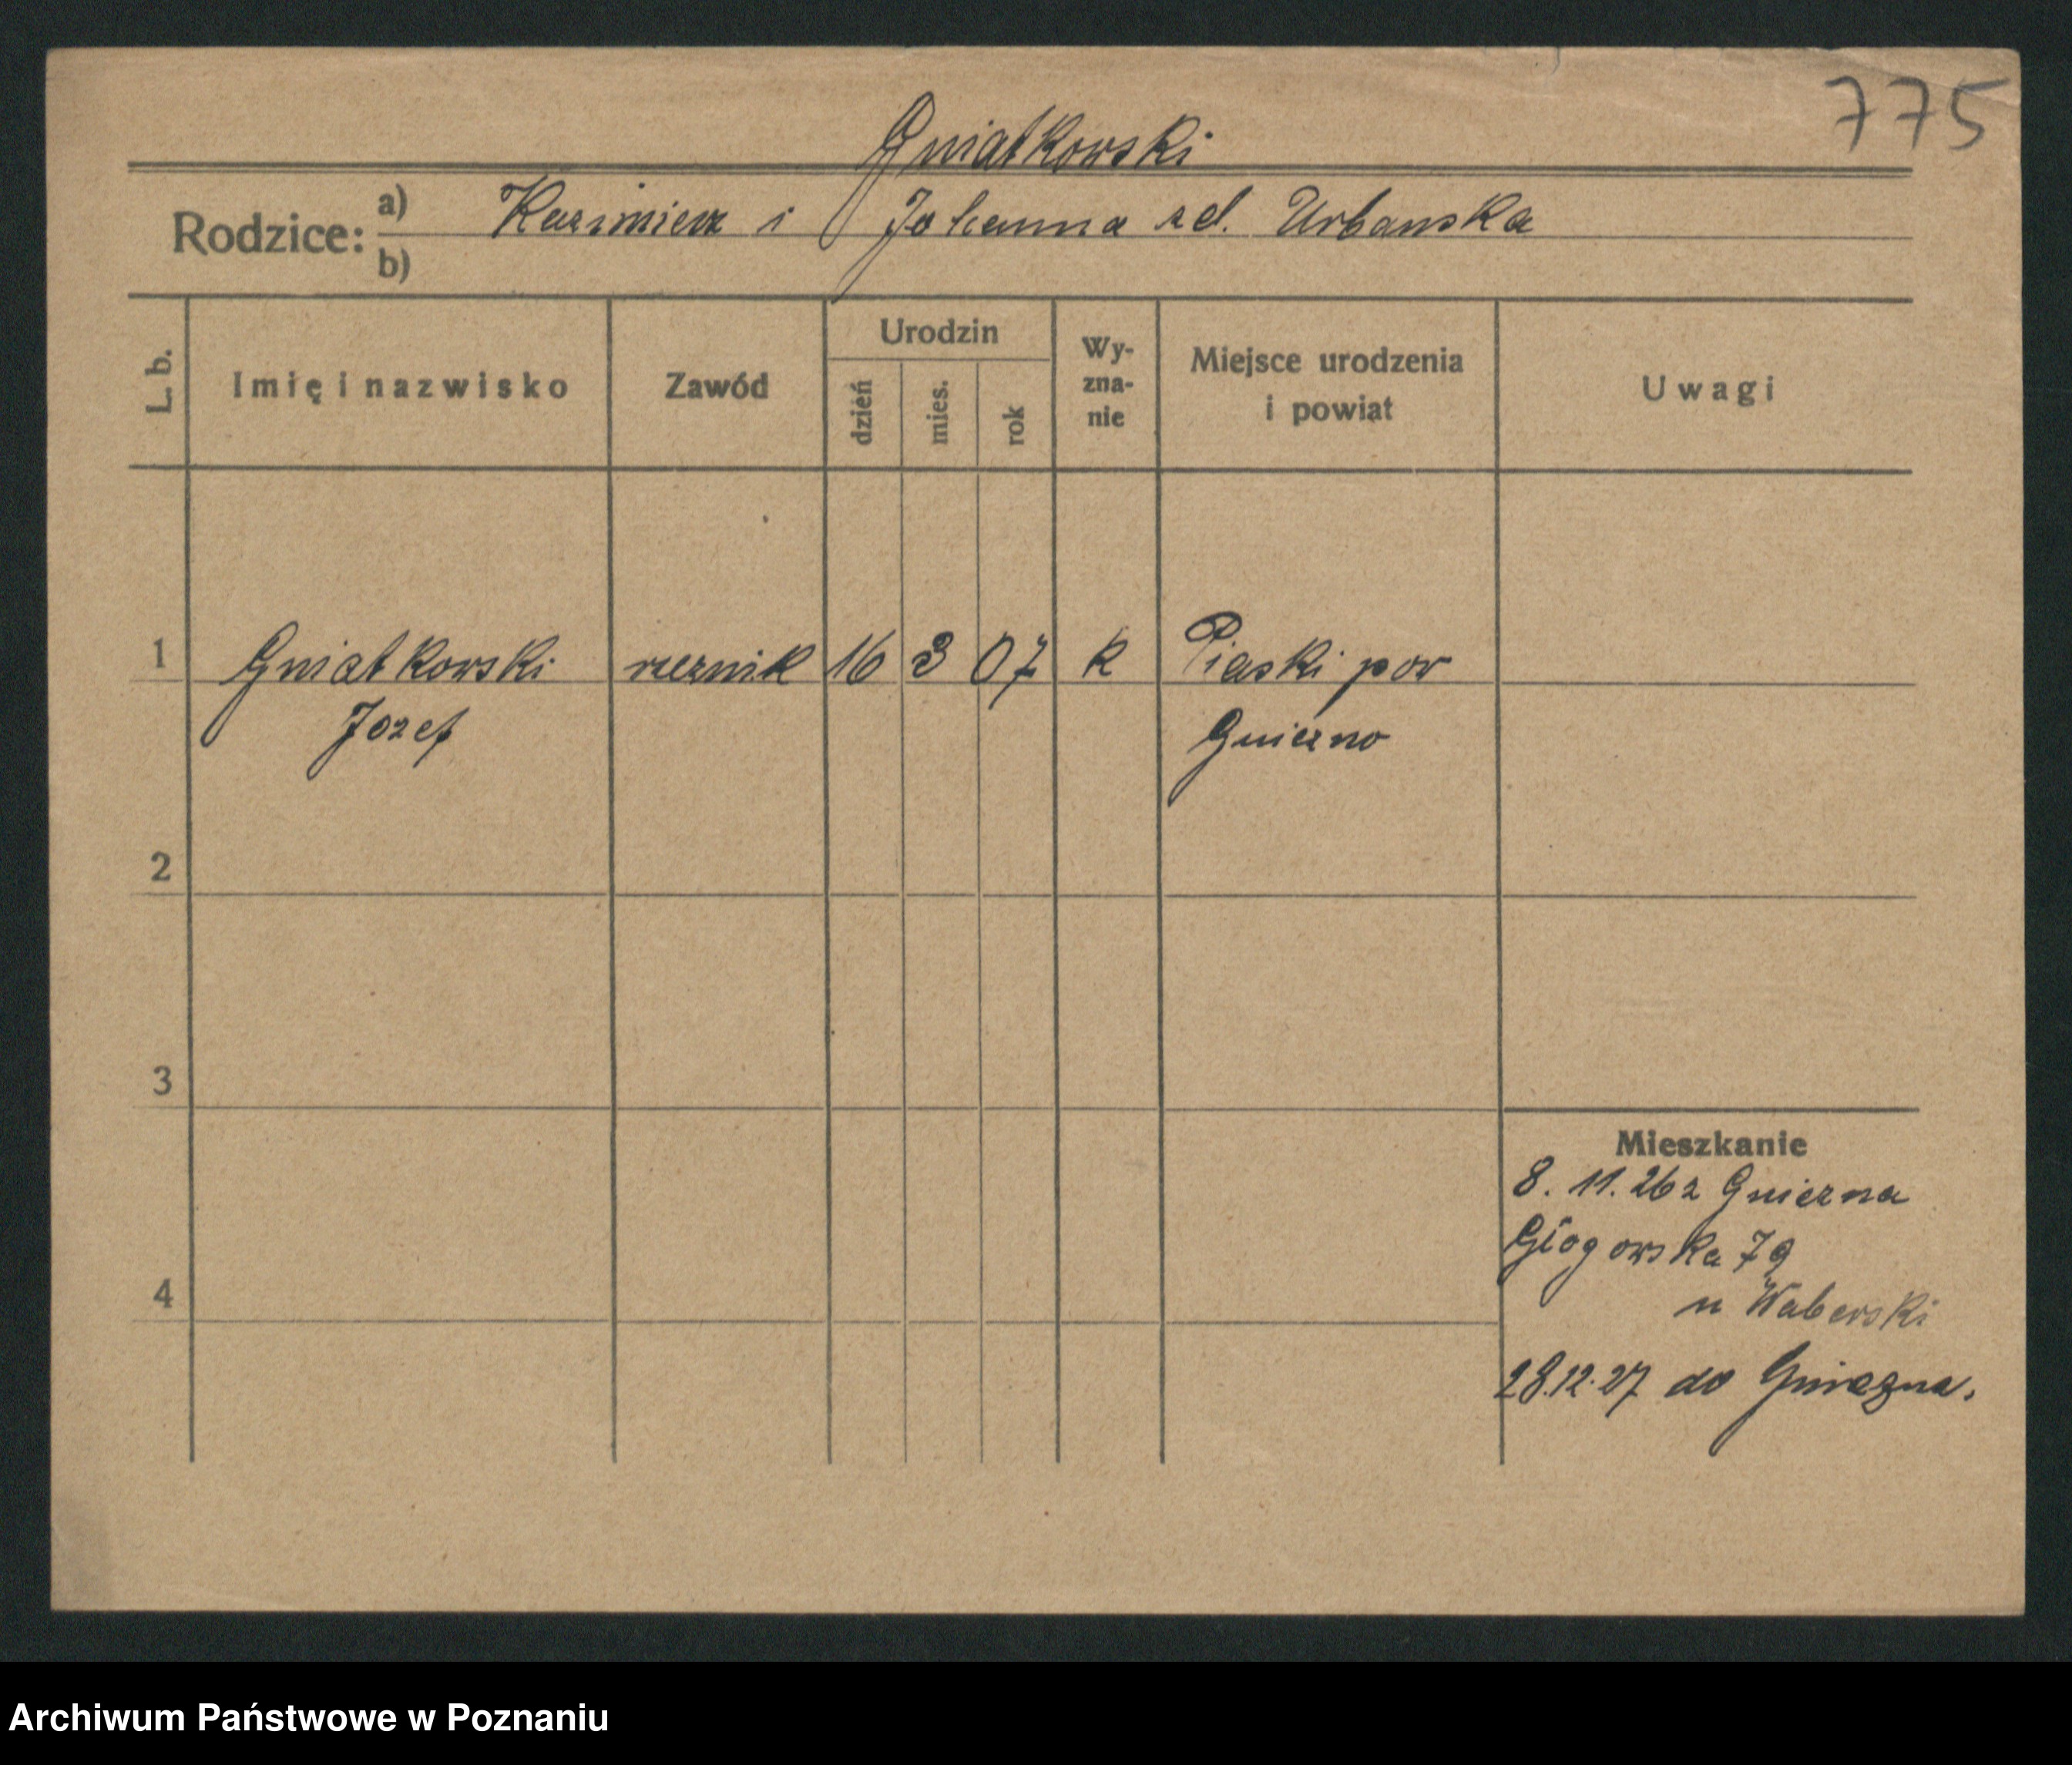 775
Gniatkowski
Rodzice: a) Kazimierz i Johanna zd. Urbanska
b)
L. b.
Imię i nazwisko
Zawód
Urodzin
dzień
mies.
rok
Wy-
zna-
nie
Miejsce urodzenia
i powiat
Uwagi
1 Gniatkowski rzeznik 16 3 07 k Piaski pow
Jozef Gniezno
2
3
Mieszkanie
8. 11. 26 z Gniezna
Glogowska 79
u Waberski
4
28.12.27 do Gniezna.
Archiwum Państwowe w Poznaniu